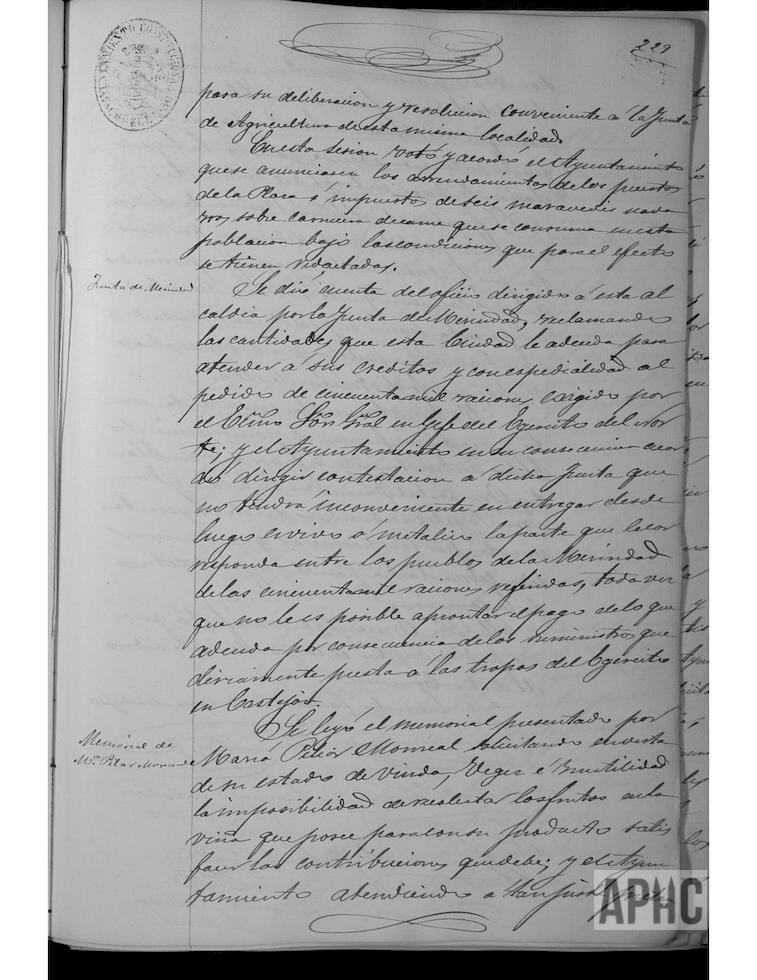 229
para su deliberacion y resolucion conveniente á la Junta
de Agricultura de esta misma localidad.
En esta sesion votó y acordó el Ayuntamiento
que se anunciasen los arrendamientos de los puestos
de la Plaza é impuestos de seis maravedis nava
rros sobre carnicera de carne que se consuma en esta
poblacion bajo las condiciones que para el efecto
se tienen redactadas.
Junta de Merindad
Se dió cuenta del oficio dirigido á esta al
caldia por la Junta de Merindad, reclamando
las cantidades que esta Ciudad le adeuda para
atender á sus creditos y con espedialidad al
pedido de cincuenta mil raciones exigido por
el Ecmo Sor. Gral en Gefe del Egercito del Nor
te; y el Ayuntamiento en su consecuencia acor
dó dirigir contestacion á dicha Junta que
no tendrá inconveniente en entregar desde
luego en vivo ó metalico la parte que le cor
responda entre los pueblos de la Merindad
de las cincuenta mil raciones referidas, toda vez
que no le es posible aprontar el pago de lo que
adeuda por consecuencia de los suministros que
diriamente presta á las tropas del Egercito
en Castejon.
Memorial de
Mª. Pilar Monreal
Se leyó el memorial presentado por
Maria Pilar Monreal solicitando en vista
de su estado de viuda, vegez é inutilidad
la imposibilidad de recolectar los frutos en la
viña que posee para con su producto satis
facer las contribuciones que debe; y el Ayun
tamiento atendiendo á tan justa
APHC